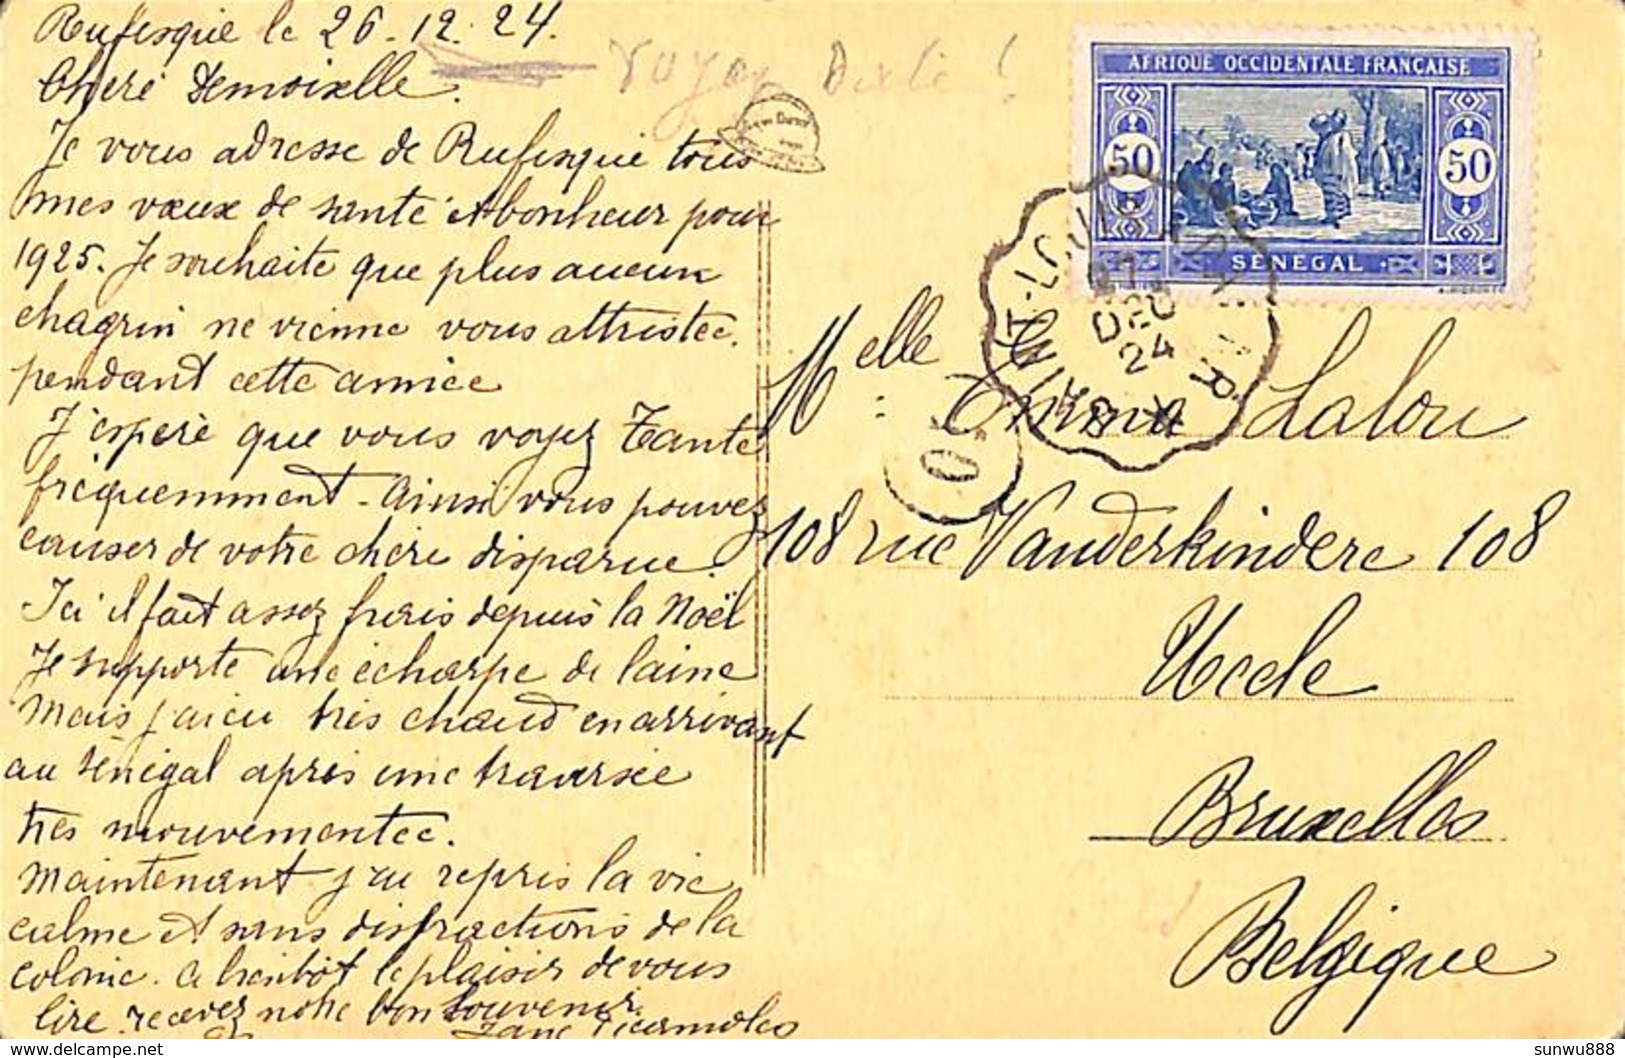 Rufisque le 26-12.24.
Chère Demoiselle.
Je vous adresse de Rufisque tous
mes vœux de santé et bonheur pour
1925. Je souhaite que plus aucun
chagrin ne vienne vous attrister
pendant cette année
J'espère que vous voyez Tante
fréquemment - Ainsi vous pouvez
causer de votre chère disparue.
Ici il fait assez frais depuis la Noël
Je supporte une écharpe de laine
Mais j'ai eu très chaud en arrivant
au Sénégal après une traversée
très mouvementée.
Maintenant j'ai repris la vie
calme et sans distractions de la
colonie. A bientôt le plaisir de vous
lire recevez notre bon souvenir.
AFRIQUE OCCIDENTALE FRANÇAISE
50 50
SÉNÉGAL
DEC
24
Melle Emma Lalou
108 rue Vanderkindere 108
Uccle
Bruxelles
Belgique
sunwu888